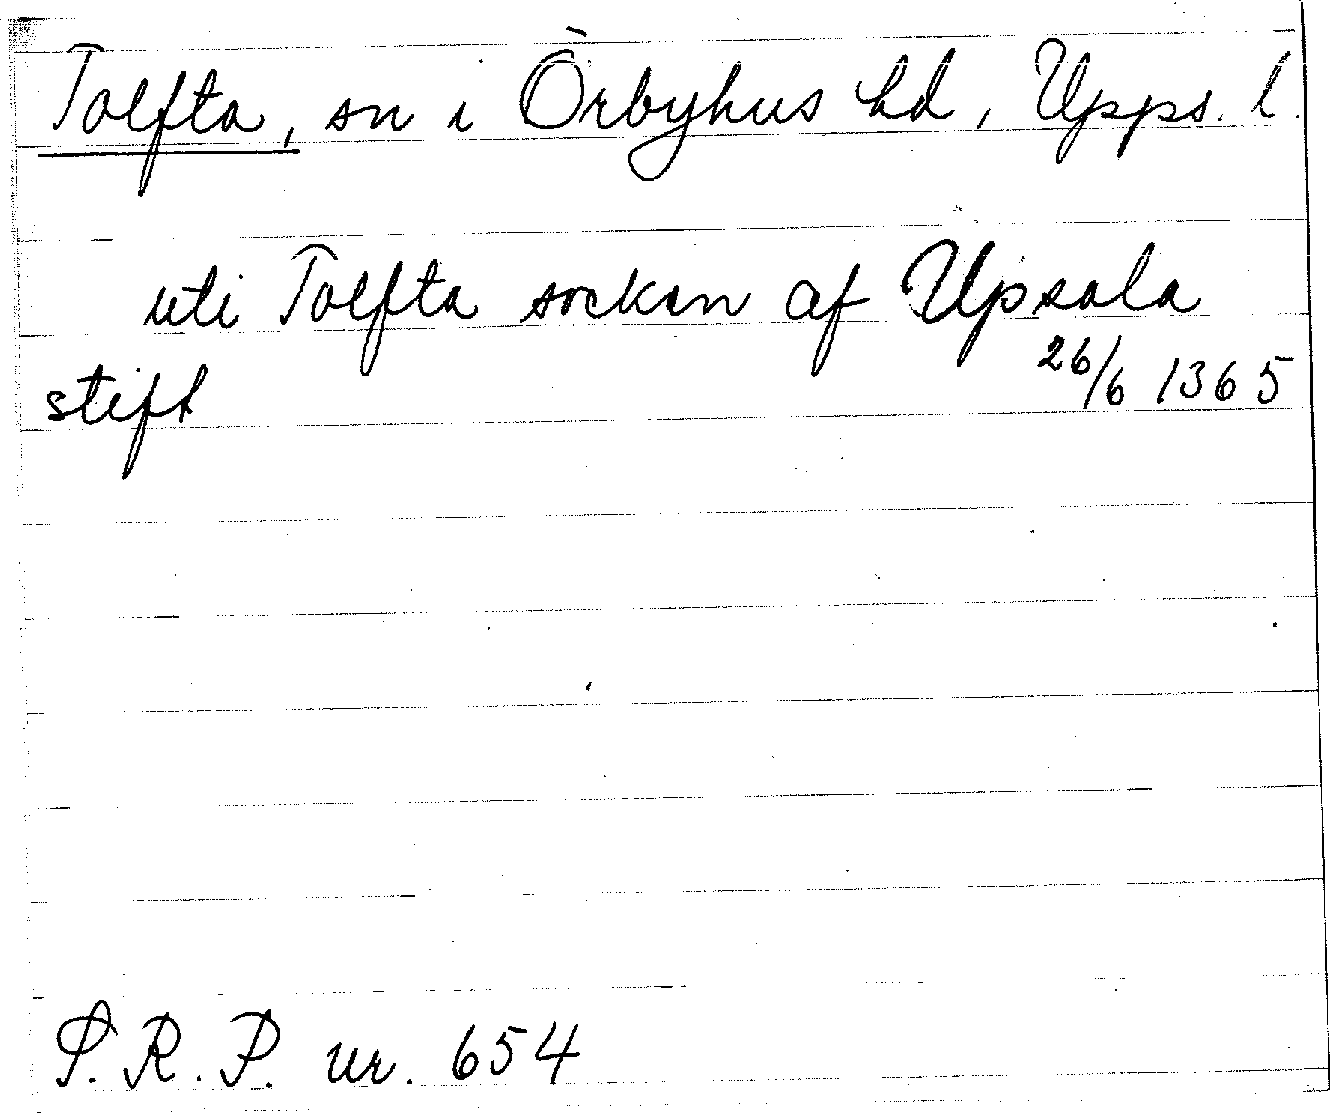 Tolfta, sn i Örbyhus hd, Upps. l.
uti Tolfta sockan af Upsala
stift 26/6 1365
S.R.P. nr. 654